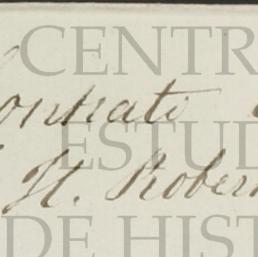 CENTR
Contrato
ESTUD
H. Rober
DE HIST